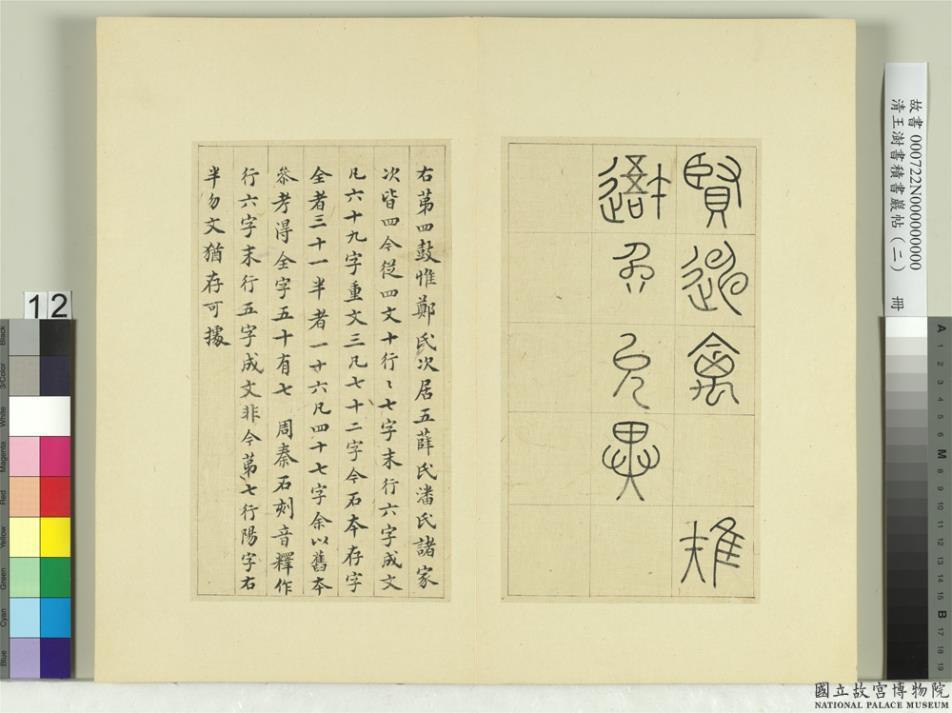 賢
禽
雉
允異
右苐四鼓惟鄭氏次居五薛氏潘氏諸家
次皆四今從四文十行〻七字末行六字成文
凡六十九字重文三凡七十二字今石本存字
全者三十一半者一十六凡四十七字余以舊本
叅考得全字五十有七 周秦石刻音釋作
行六字末行五字成文非今苐七行陽字右
半勿文猶存可據
故書 000722N000000000
清王澍書積書巖帖(二) 冊
12
國立故宮博物院
NATIONAL PALACE MUSEUM